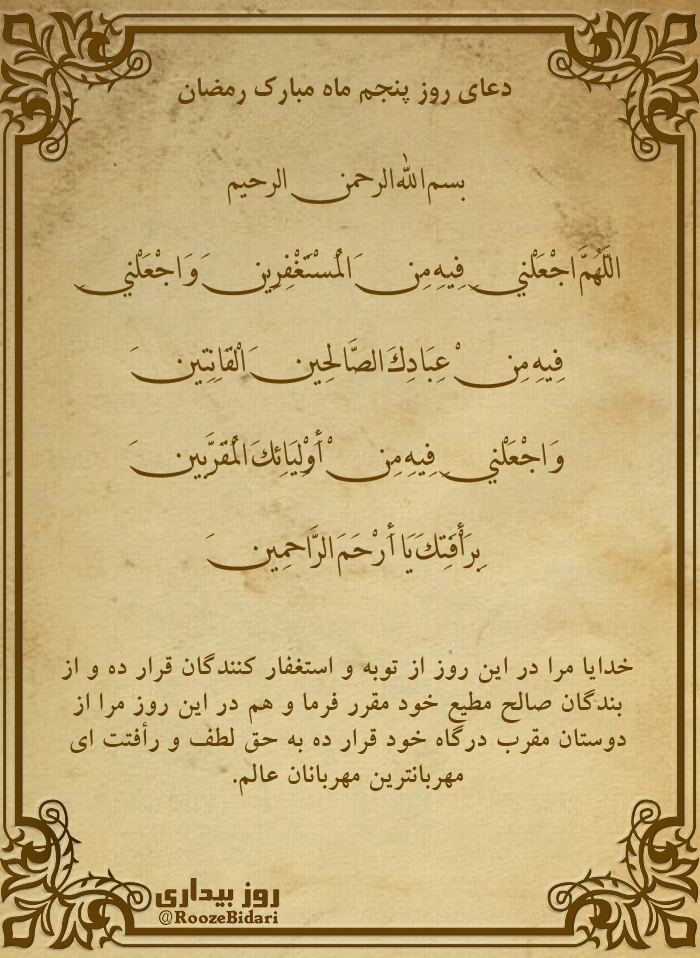 دعای روز پنجم ماه مبارک رمضان
بسم الله الرحمن الرحیم
اللَّهُمَّ اجْعَلْنِي فِيهِ مِنَ الْمُسْتَغْفِرِينَ وَ اجْعَلْنِي
فِيهِ مِنْ عِبَادِكَ الصَّالِحِينَ الْقَانِتِينَ
وَ اجْعَلْنِي فِيهِ مِنْ أَوْلِيَائِكَ الْمُقَرَّبِينَ
بِرَأْفَتِكَ يَا أَرْحَمَ الرَّاحِمِينَ
خدایا مرا در این روز از توبه و استغفار کنندگان قرار ده و از
بندگان صالح مطیع خود مقرر فرما و هم در این روز مرا از
دوستان مقرب درگاه خود قرار ده به حق لطف و رأفتت ای
مهربانترین مهربانان عالم.
روز بیداری
@RoozeBidari